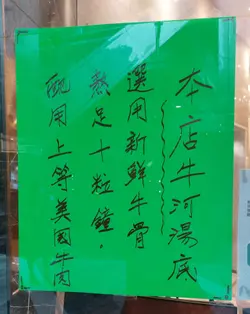 本店牛河湯底
選用新鮮牛骨
熬足十粒鐘，
配用上等美國牛肉